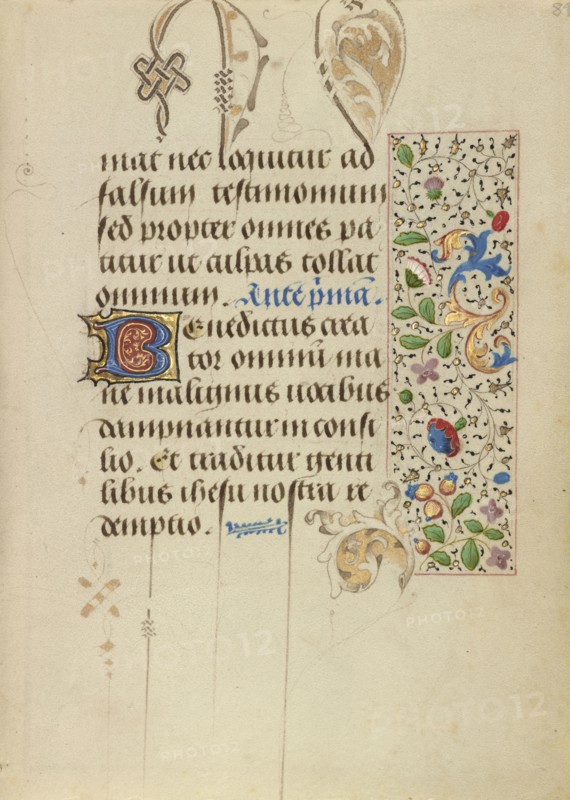 81
mat nec loquitur ad
falsum testimonium
sed propter omnes pa
titur ut culpas tollat
omnium. Ante p̄mā.
Benedictus crea
tor omniū ma
ne malignis vocibus
dampnantur in consi
lio. Et traditur genti
libus ihesu nostra re
demptio.
PHOTO12